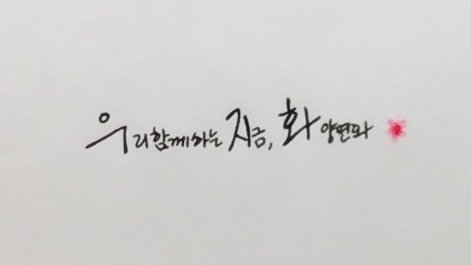 우리함께하는 지금, 화양연화